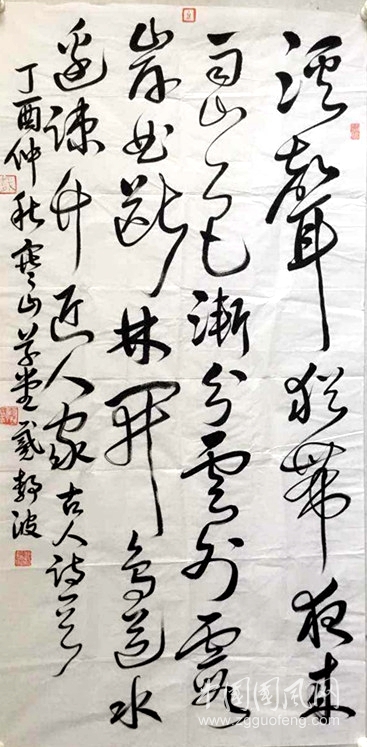 溪聲猶帶夜來
雨山色漸分雲外霞
岸曲斷林開鳥道水
邊疎竹近人家古人詩一首
丁酉仲秋寒山草堂 静波
中国国风网
www.zgguofeng.com